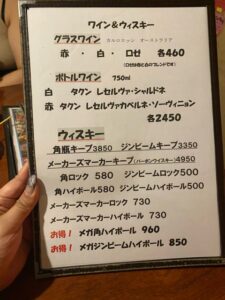 ワイン＆ウィスキー
グラスワイン カルロロッシ オーストラリア
赤・白・ロゼ 各460
(ロゼは赤と白のブレンドです)
ボトルワイン 750ml
白 タクン レセルヴァ・シャルドネ
赤 タクン レセルヴァカベルネ・ソーヴィニョン
各2450
ウィスキー
角瓶キープ3850 ジンビームキープ3350
メーカーズマーカーキープ(バーボンウイスキー)4950
角ロック 580 ジンビームロック500
角ハイボール580 ジンビームハイボール500
メーカーズマーカロック 730
メーカーズマーカハイボール 730
お得！ メガ角ハイボール 960
お得！ メガジンビームハイボール 850